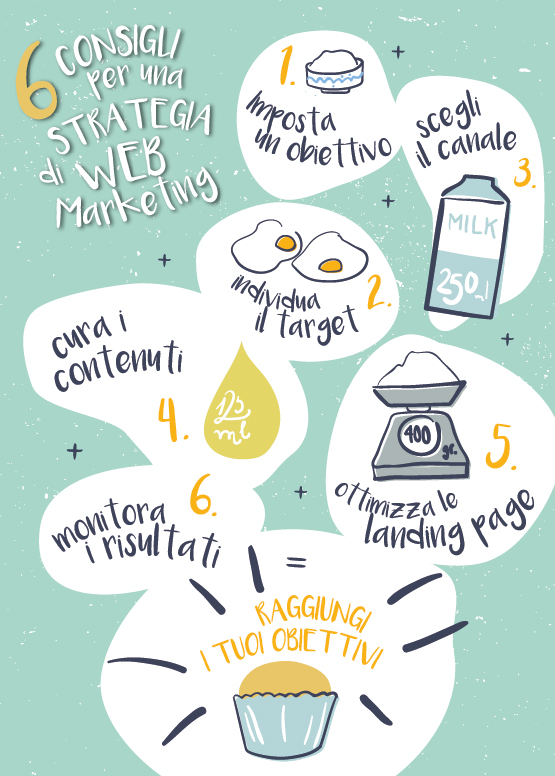 6 CONSIGLI
per una
STRATEGIA
di WEB
Marketing
1.
imposta
un obiettivo
scegli
il canale
3.
MILK
250ml
individua
il target
2.
cura i
contenuti
4.
125
ml
400
gr.
5.
ottimizza le
landing page
6.
monitora
i risultati
=
RAGGIUNGI
I TUOI OBIETTIVI